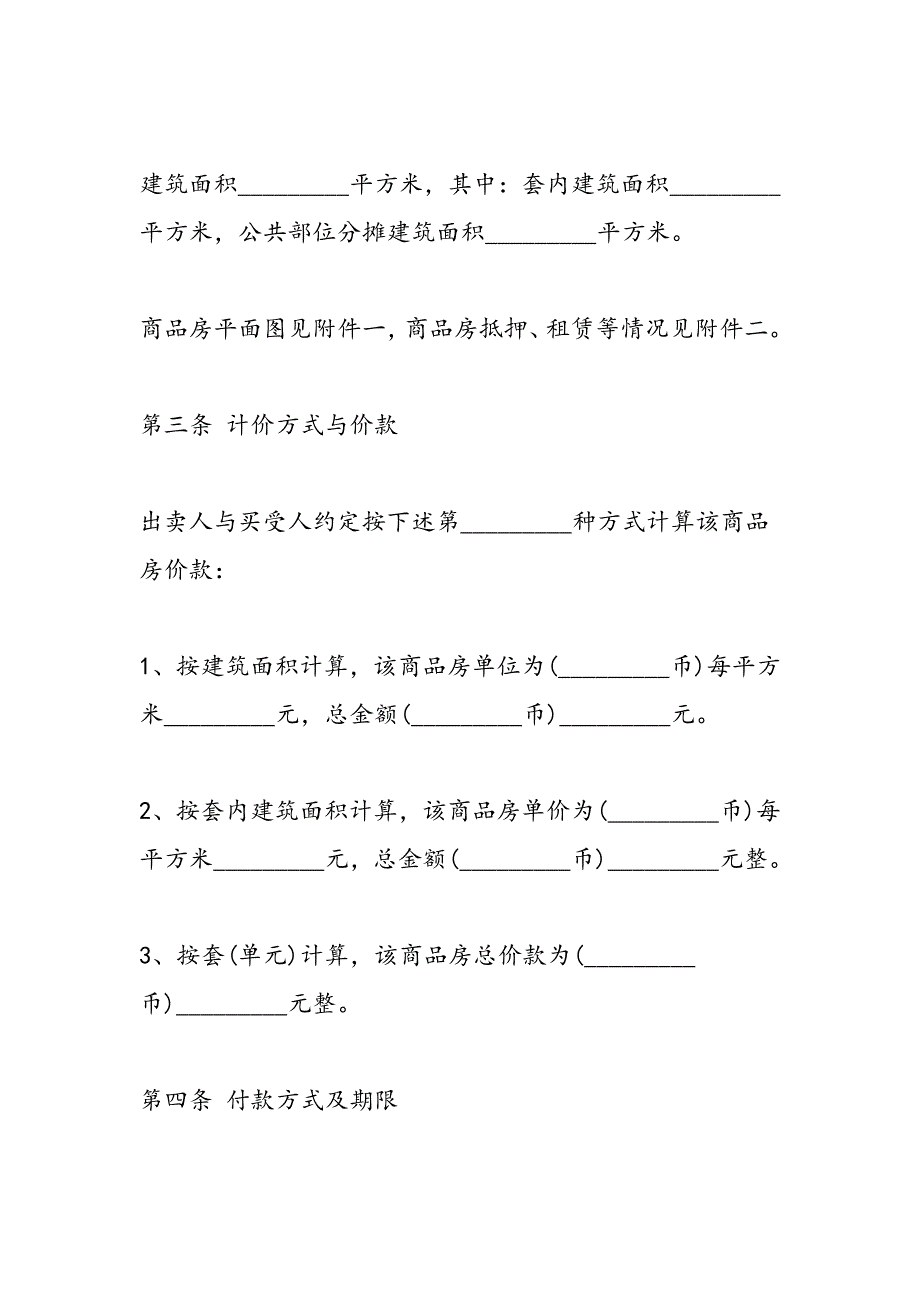 建筑面积_________平方米，其中：套内建筑面积_________
平方米，公共部位分摊建筑面积_________平方米。
商品房平面图见附件一，商品房抵押、租赁等情况见附件二。
第三条 计价方式与价款
出卖人与买受人约定按下述第_________种方式计算该商品
房价款：
1、按建筑面积计算，该商品房单位为(_________币)每平方
米_________元，总金额(_________币)_________元。
2、按套内建筑面积计算，该商品房单价为(_________币)每
平方米_________元，总金额(_________币)_________元整。
3、按套(单元)计算，该商品房总价款为(_________
币)_________元整。
第四条 付款方式及期限